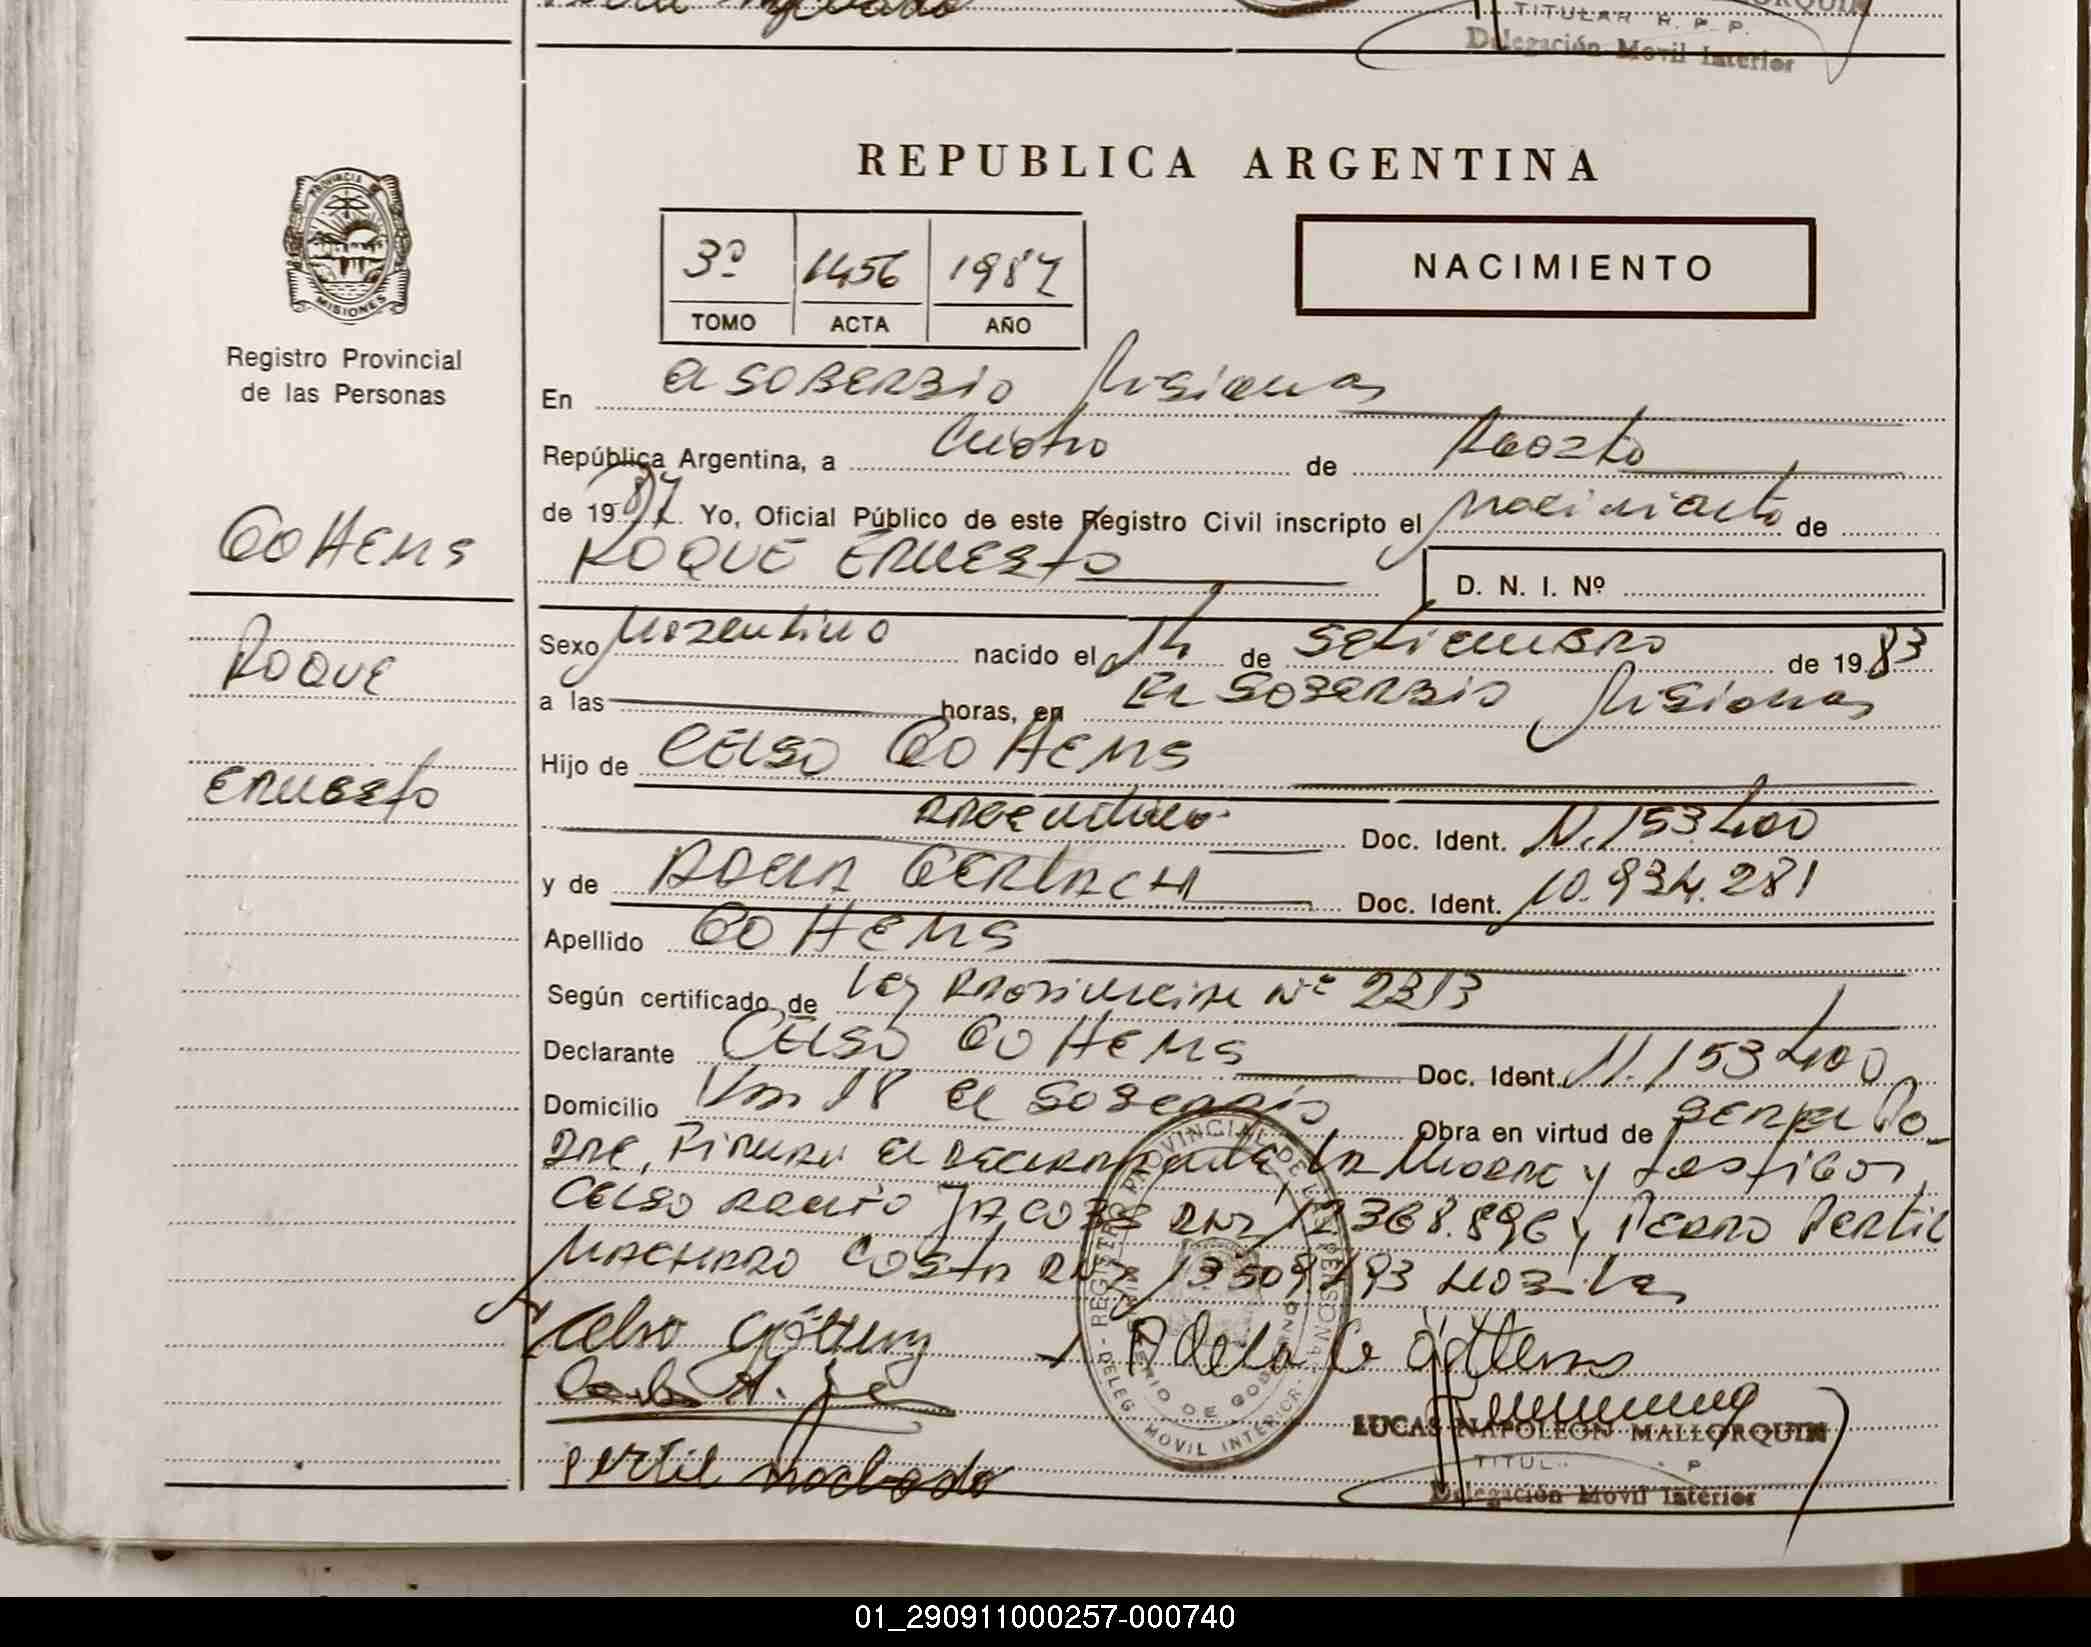 TITULAR R. P. P.
Delegación Movil Interior
REPUBLICA ARGENTINA
PROVINCIA DE
MISIONES
Registro Provincial
de las Personas
3º 1456 1987
TOMO ACTA AÑO
NACIMIENTO
En El SOBERBIO Misiones
República Argentina, a Cuatro de Agosto
de 1987. Yo, Oficial Público de este Registro Civil inscripto el nacimiento de
ROQUE ERNESTO
D. N. I. Nº
GOTTEMS
ROQUE
ERNESTO
Sexo Masculino nacido el 14 de Setiembre de 1983
a las horas, en El SOBERBIO Misiones
Hijo de CELSO GOTTEMS
Argentino Doc. Ident. 11.153.400
y de ADELA GERLACH Doc. Ident. 10.934.281
Apellido GOTTEMS
Según certificado de Ley Provincial Nº 2313
Declarante CELSO GOTTEMS Doc. Ident. 11.153.400
Domicilio Km 18 El SOBERBIO Obra en virtud de ser el Pa-
dre, Firman el declarante, la Madre y testigos
CELSO JACOBS DNI 12.368.896 y Pedro Pertil
MACHADO COSTA DNI
Celso Göttems Adela G Göttems
Pertil Machado
REGISTRO PROVINCIAL DE LAS PERSONAS
MINISTERIO DE GOBIERNO
DELEG. MOVIL INTERIOR
LUCAS NAPOLEON MALLORQUIN
TITUL P
Delegación Movil Interior
01_290911000257-000740